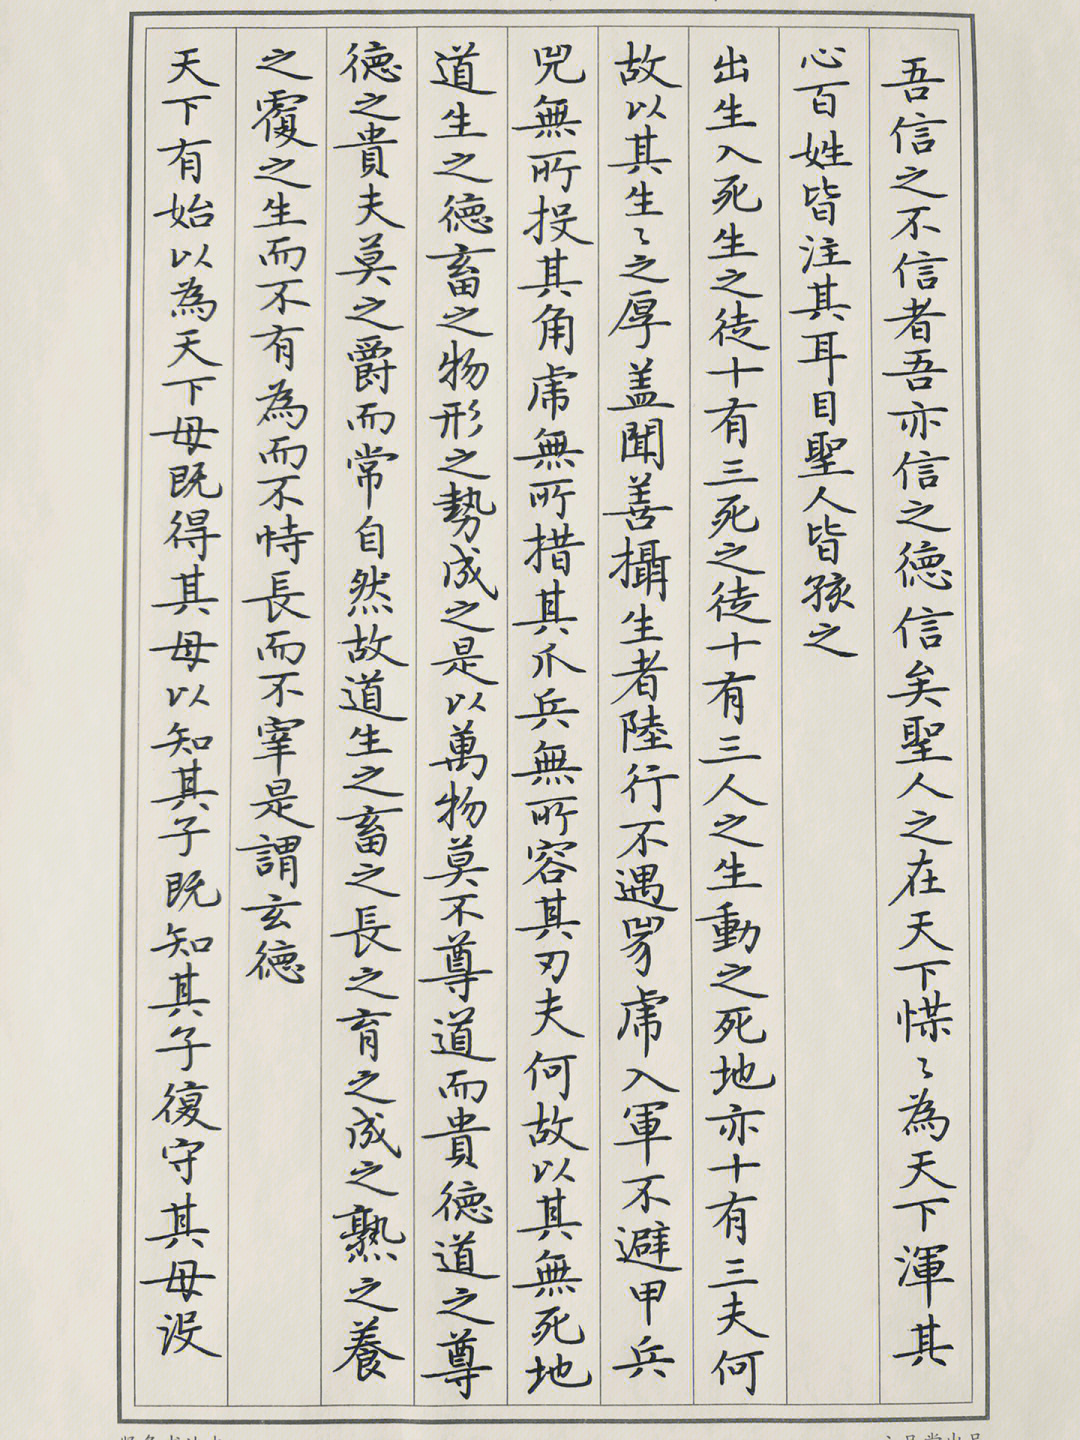 吾信之不信者吾亦信之德信矣聖人之在天下惵〻為天下渾其
心百姓皆注其耳目聖人皆孩之
出生入死生之徒十有三死之徒十有三人之生動之死地亦十有三夫何
故以其生〻之厚盖聞善攝生者陸行不遇兕虎入軍不避甲兵
兕無所投其角虎無所措其爪兵無所容其刃夫何故以其無死地
道生之德畜之物形之勢成之是以萬物莫不尊道而貴德道之尊
德之貴夫莫之爵而常自然故道生之畜之長之育之成之熟之養
之覆之生而不有為而不恃長而不宰是謂玄德
天下有始以為天下母既得其母以知其子既知其子復守其母没